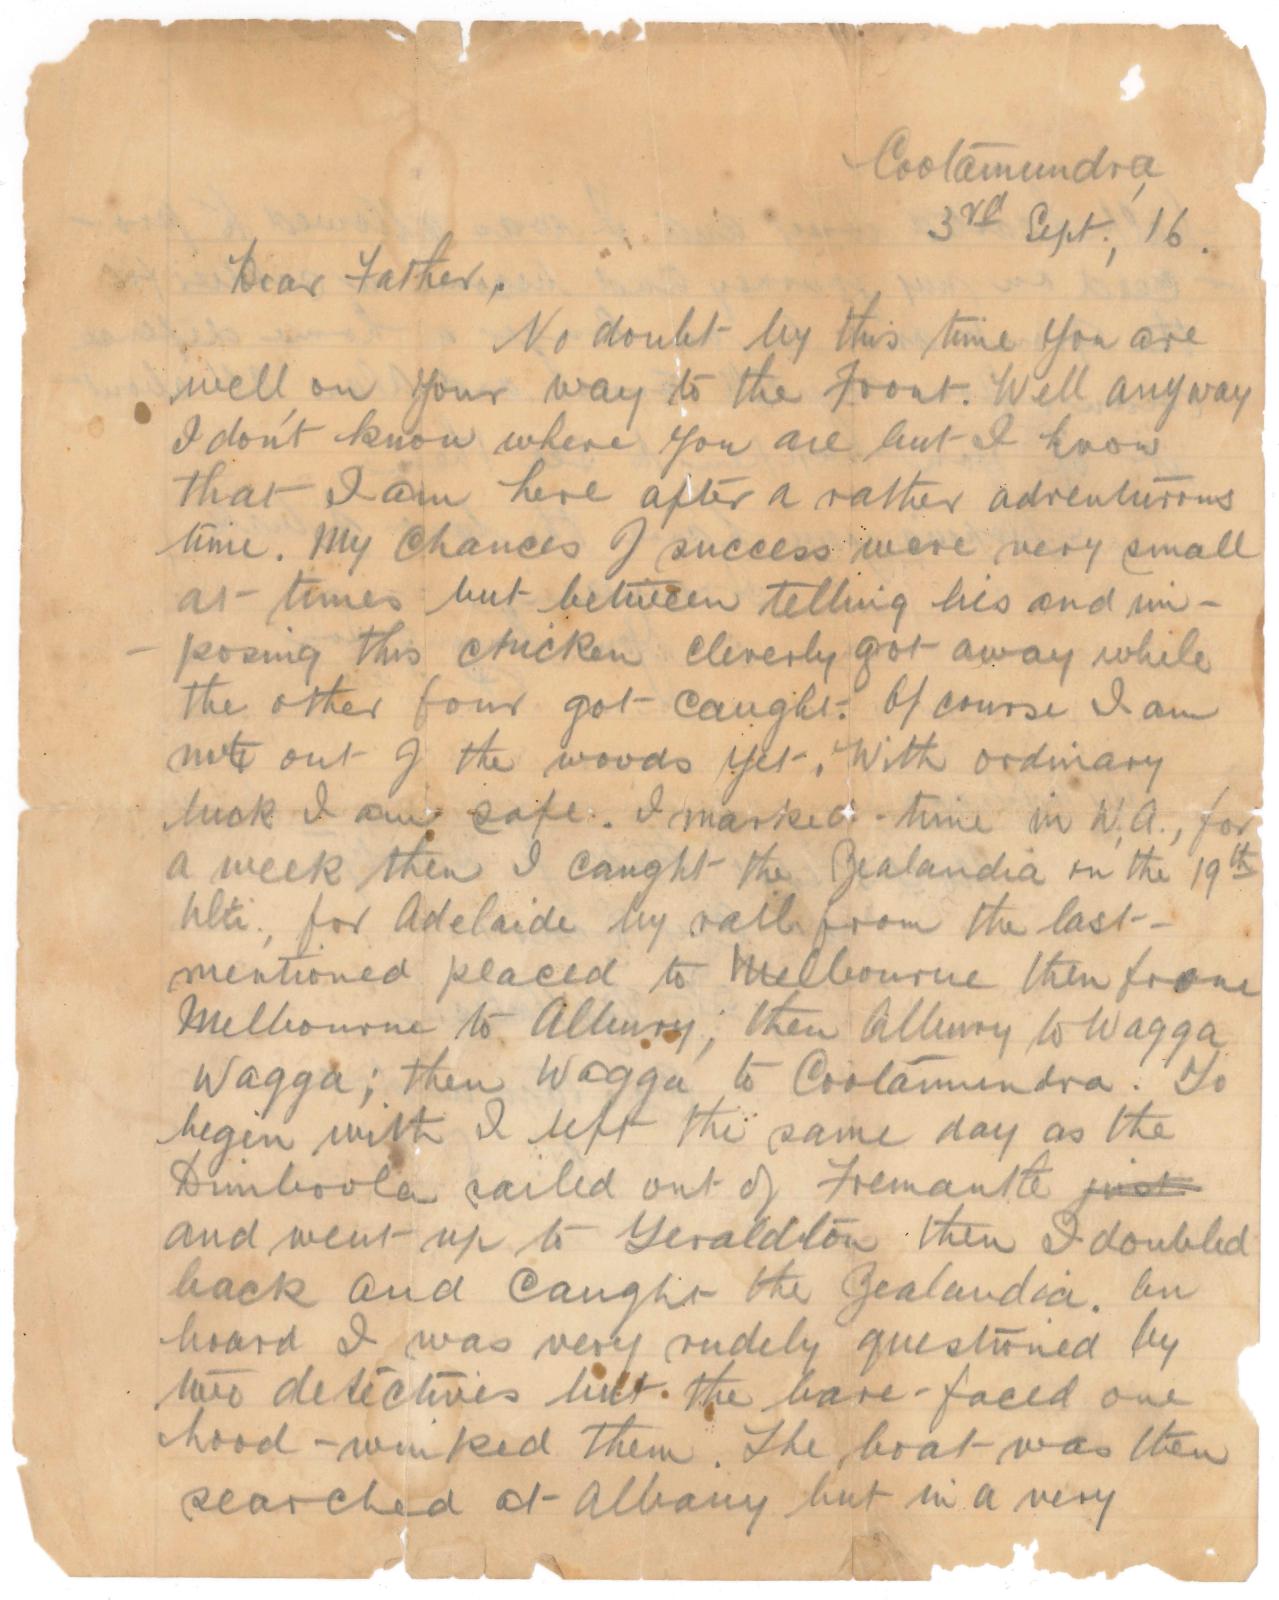 Cootamundra,
3rd Sept., 16.
Dear Father,
No doubt by this time you are
well on your way to the Front. Well anyway
I don't know where you are but I know
that I am here after a rather adventurous
time. My chances of success were very small
at times but between telling lies and im-
-posing this chicken cleverly got away while
the other four got caught. Of course I am
not out of the woods yet. With ordinary
luck I am safe. I marked-time in W.A., for
a week then I caught the Zealandia on the 19th
Ult., for Adelaide by rail from the last-
mentioned placed to Melbourne then from
Melbourne to Albury; then Albury to Wagga
Wagga; then Wagga to Cootamundra. To
begin with I left the same day as the
Dimboola sailed out of Fremantle just
and went up to Geraldton then I doubled
back and caught the Zealandia. On
board I was very rudely questioned by
two detectives but the bare-faced one
hood-winked them. The boat was then
searched at Albany but in a very